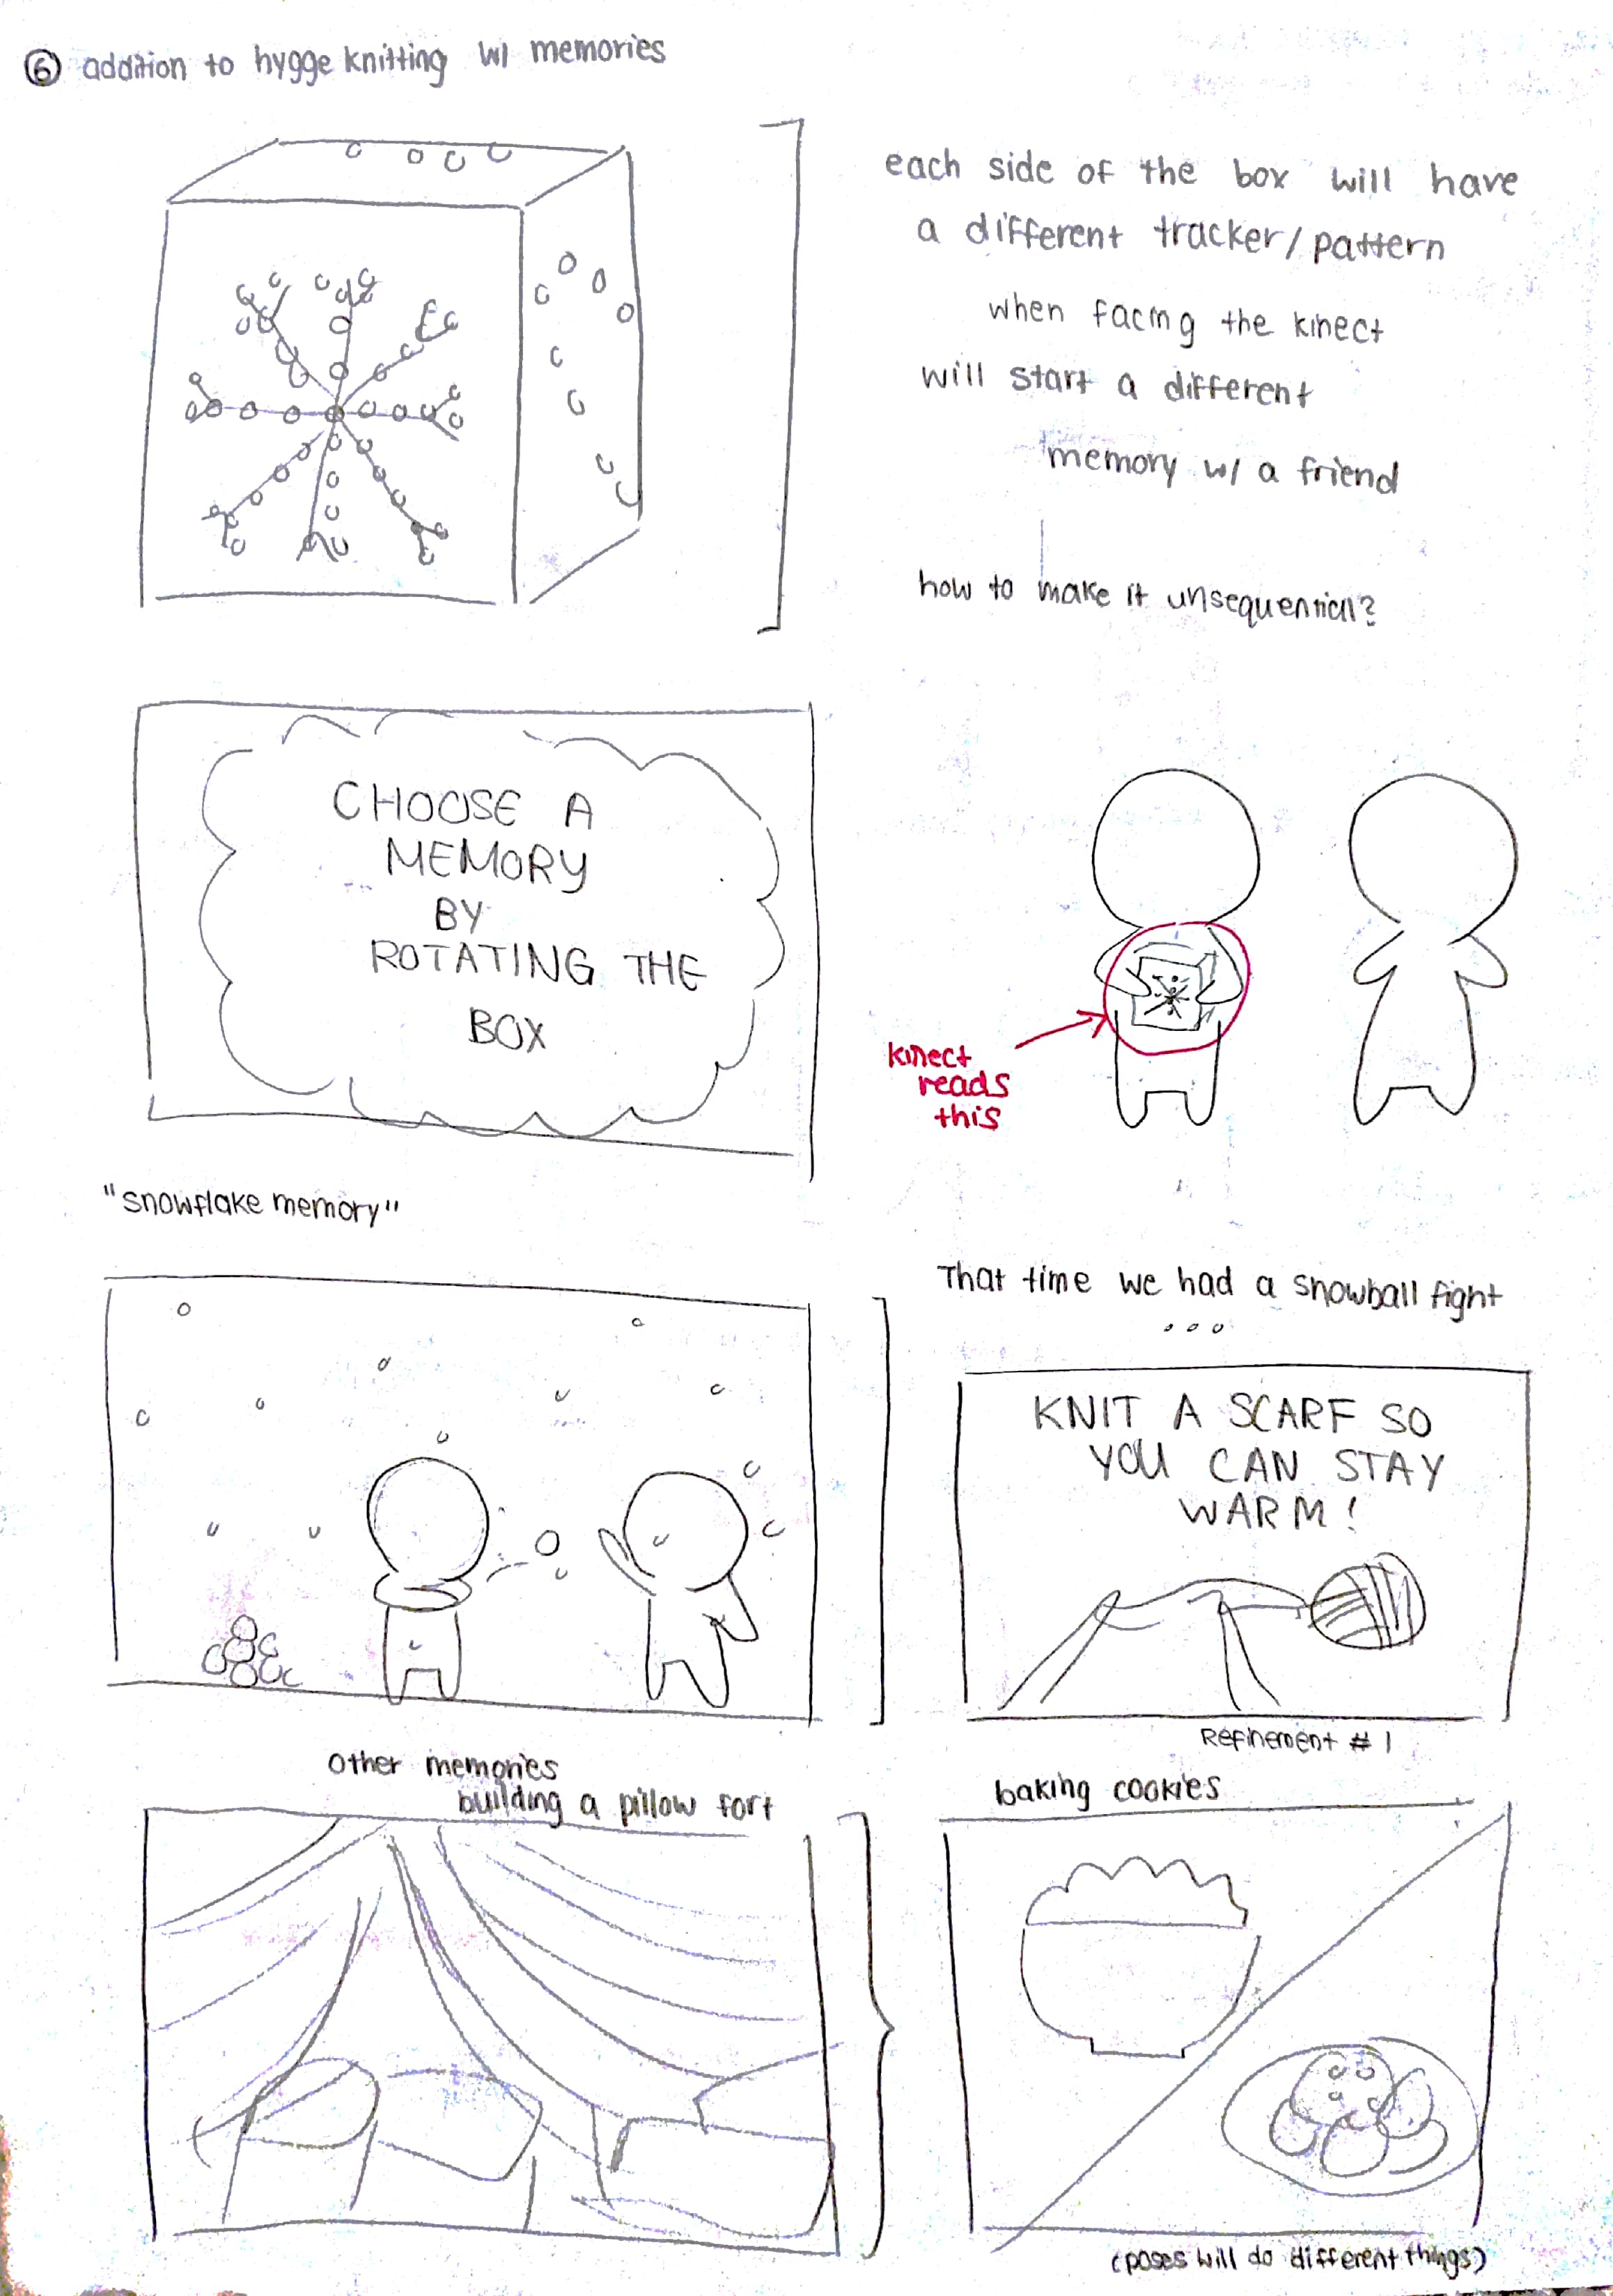 ⑥ addition to hygge knitting w/ memories
each side of the box will have
a different tracker/pattern
when facing the kinect
will start a different
memory w/ a friend
how to make it unsequential?
CHOOSE A
MEMORY
BY
ROTATING THE
BOX
kinect
reads
this
"snowflake memory"
That time we had a snowball fight
...
KNIT A SCARF SO
YOU CAN STAY
WARM!
Refinement #1
other memories
building a pillow fort
baking cookies
(poses will do different things)